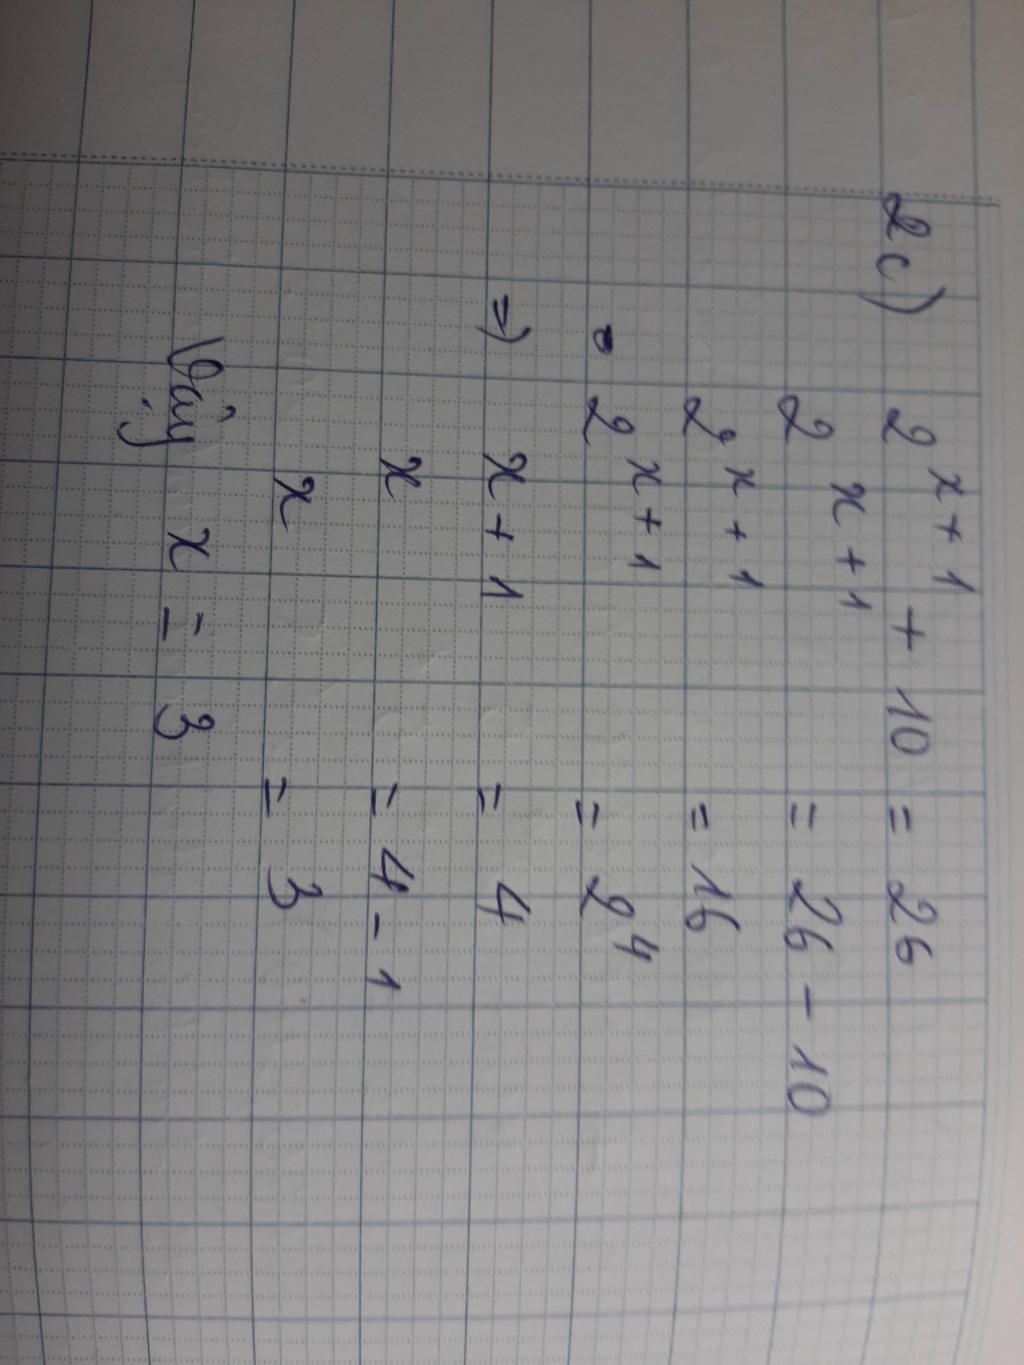 2c) 2^{x+1} + 10 = 26
2^{x+1} = 26 - 10
2^{x+1} = 16
2^{x+1} = 2^4
=> x+1 = 4
x = 4-1
x = 3
Vậy x = 3